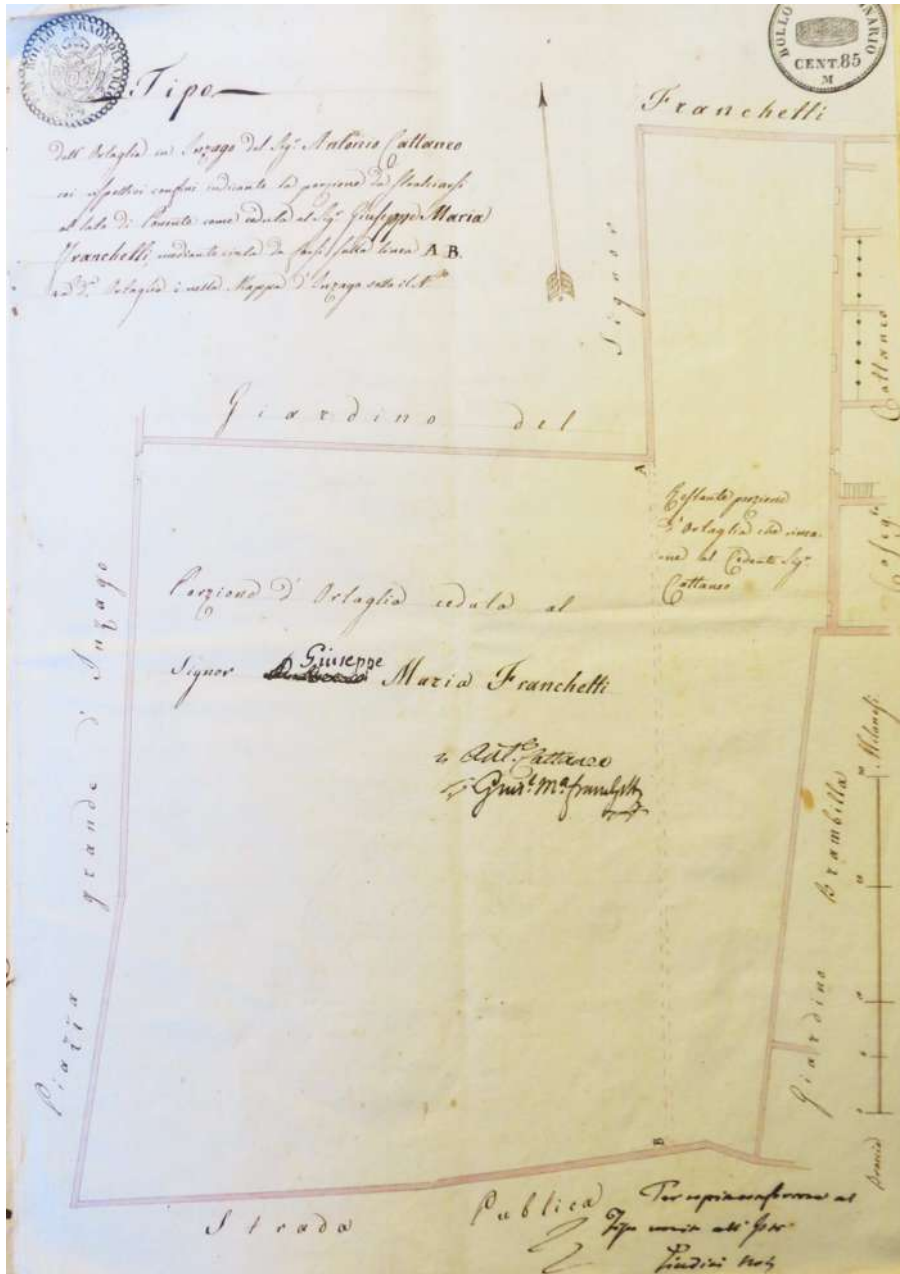 BOLLO STRAORDINARIO
BOLLO
CENT. 85
M
Tipo
dell' Ortaglia in Inzago del Sigr. Antonio Cattaneo
coi rispettivi confini indicante la porzione da stralciarsi
al lato di Ponente come ceduta al Sigr. Giuseppe Maria
Franchetti, mediante cinta da farsi sulla linea A B.
Ortaglia è nella Mappa d'Inzago sotto il No.
Giardino del
Signor
Franchetti
A
Restante porzione
d'Ortaglia che rima-
ne al Cedente Sigr.
Cattaneo
Porzione d'Ortaglia ceduta al
Signor Giuseppe Maria Franchetti
Ant. Cattaneo
Gius.e Ma. Franchetti
Piazza grande d'Inzago
Casa Sigr. Cattaneo
Giardino Brambilla
Braccia
Milanesi
B
Strada Publica
Per copia conforme al
Tipo